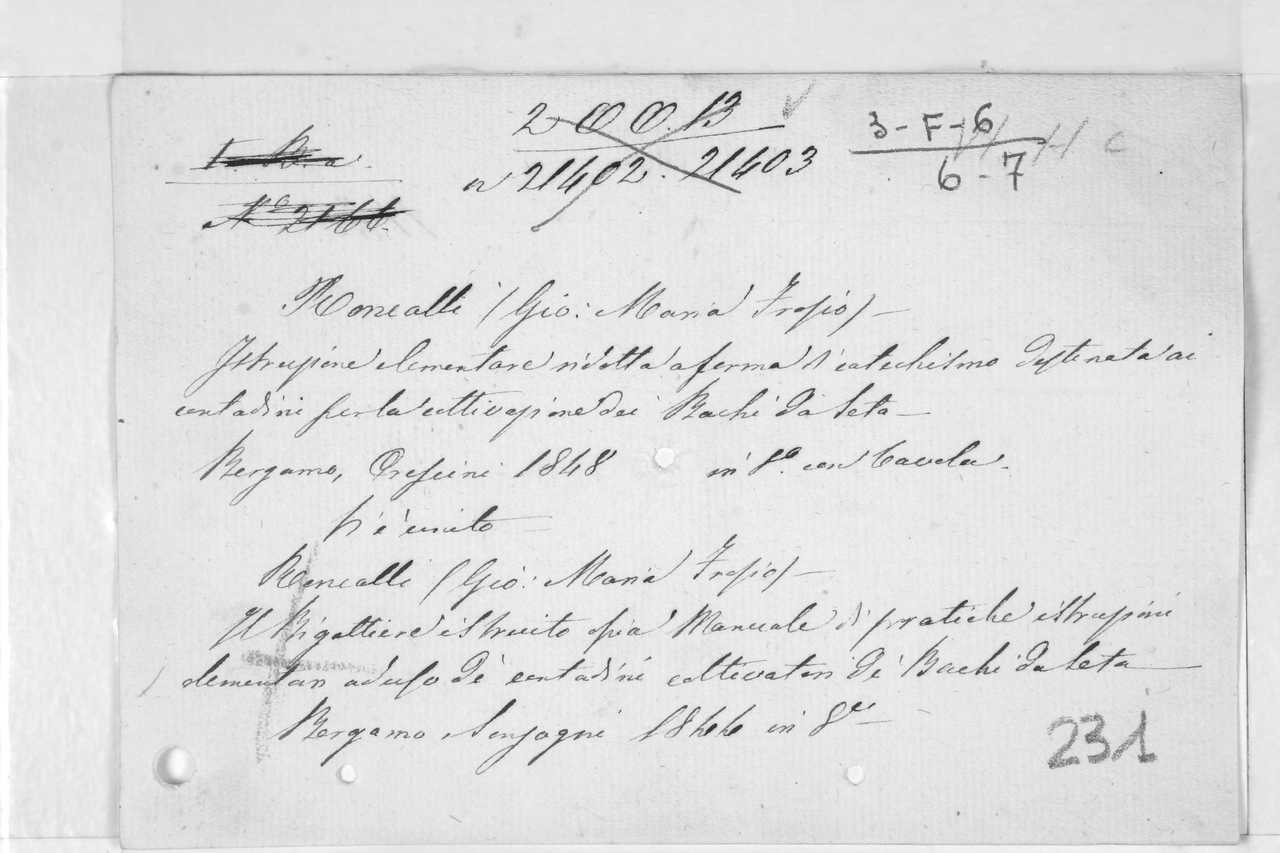 200.13
3-F-6
6-7
n 21402. 21403
Roncalli (Gio: Maria Frosio) —
Istruzione elementare ridotta a forma di catechismo destinata ai
contadini per la coltivazione dei Bachi da Seta —
Bergamo, Crescini 1848 in 8.º con tavola.
Si è unito —
Roncalli (Gio: Maria Frosio) —
Il Bigattiere istruito ossia Manuale di pratiche istruzioni
elementari ad uso dè contadini coltivatori dè Bachi da Seta —
Bergamo Sonzogni 1844 in 8.º —
231